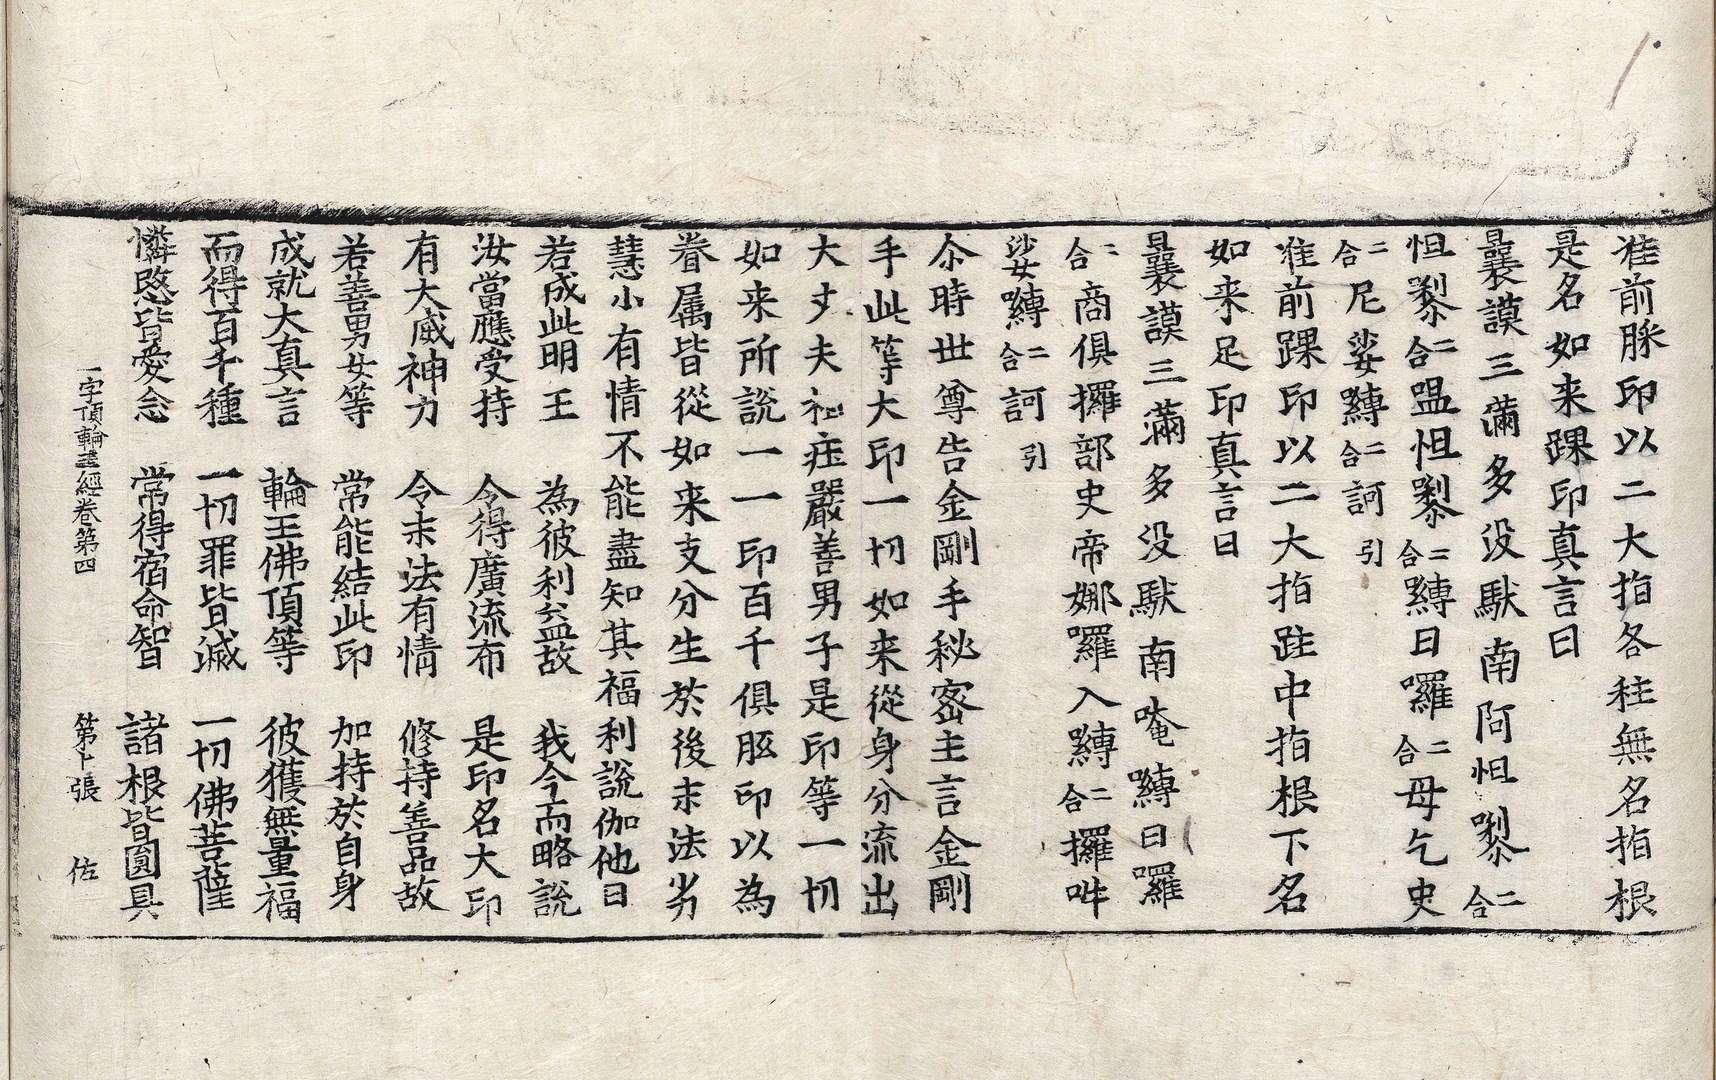 准前䐗印以二大指各拄無名指根
是名如来踝印真言曰
曩謨三滿多没馱南阿怛㘑二合
怛㘑二合嗢怛㘑二合嚩日囉二合母乞史
二合尼娑嚩二合訶引
准前踝印以二大指跓中指根下名
如来足印真言曰
曩謨三滿多没馱南唵嚩日囉
二合商俱攞部史帝娜囉入嚩二合攞吽
娑嚩二合訶引
尒時世尊告金剛手秘密主言金剛
手此等大印一切如来從身分流出
大丈夫相症嚴善男子是印等一切
如来所說一一印百千俱胝印以為
眷属皆從如来支分生於後末法劣
慧小有情不能盡知其福利說伽他曰
若成此明王 為彼利益故 我今而略說
汝當應受持 令得廣流布 是印名大印
有大威神力 令末法有情 修持善品故
若善男女等 常能結此印 加持於自身
成就大真言 輪王佛頂等 彼獲無量福
而得百千種 一切罪皆滅 一切佛菩薩
憐愍皆愛念 常得宿命智 諸根皆圓具
一字頂輪王經卷第四 第十張 佐